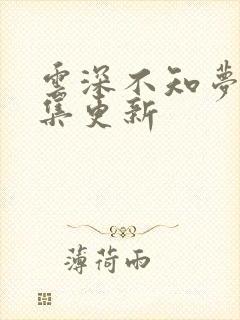 雲深不知夢
集更新
薄荷雨